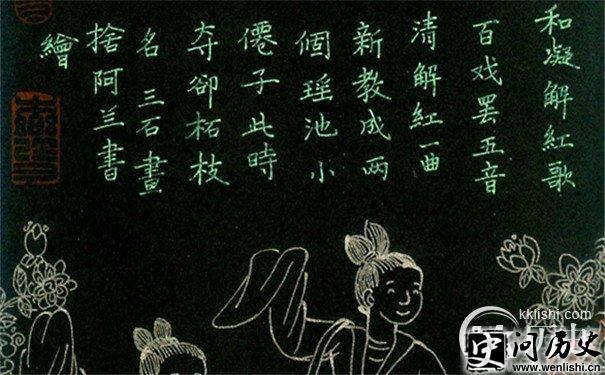 和凝解紅歌
百戏罢五音
清解紅一曲
新教成两
個瑶池小
僊子此時
夺卻柘枝
名 三石畫
捨阿兰書
繪
kklishi.com
问历史
www.wenlishi.cn